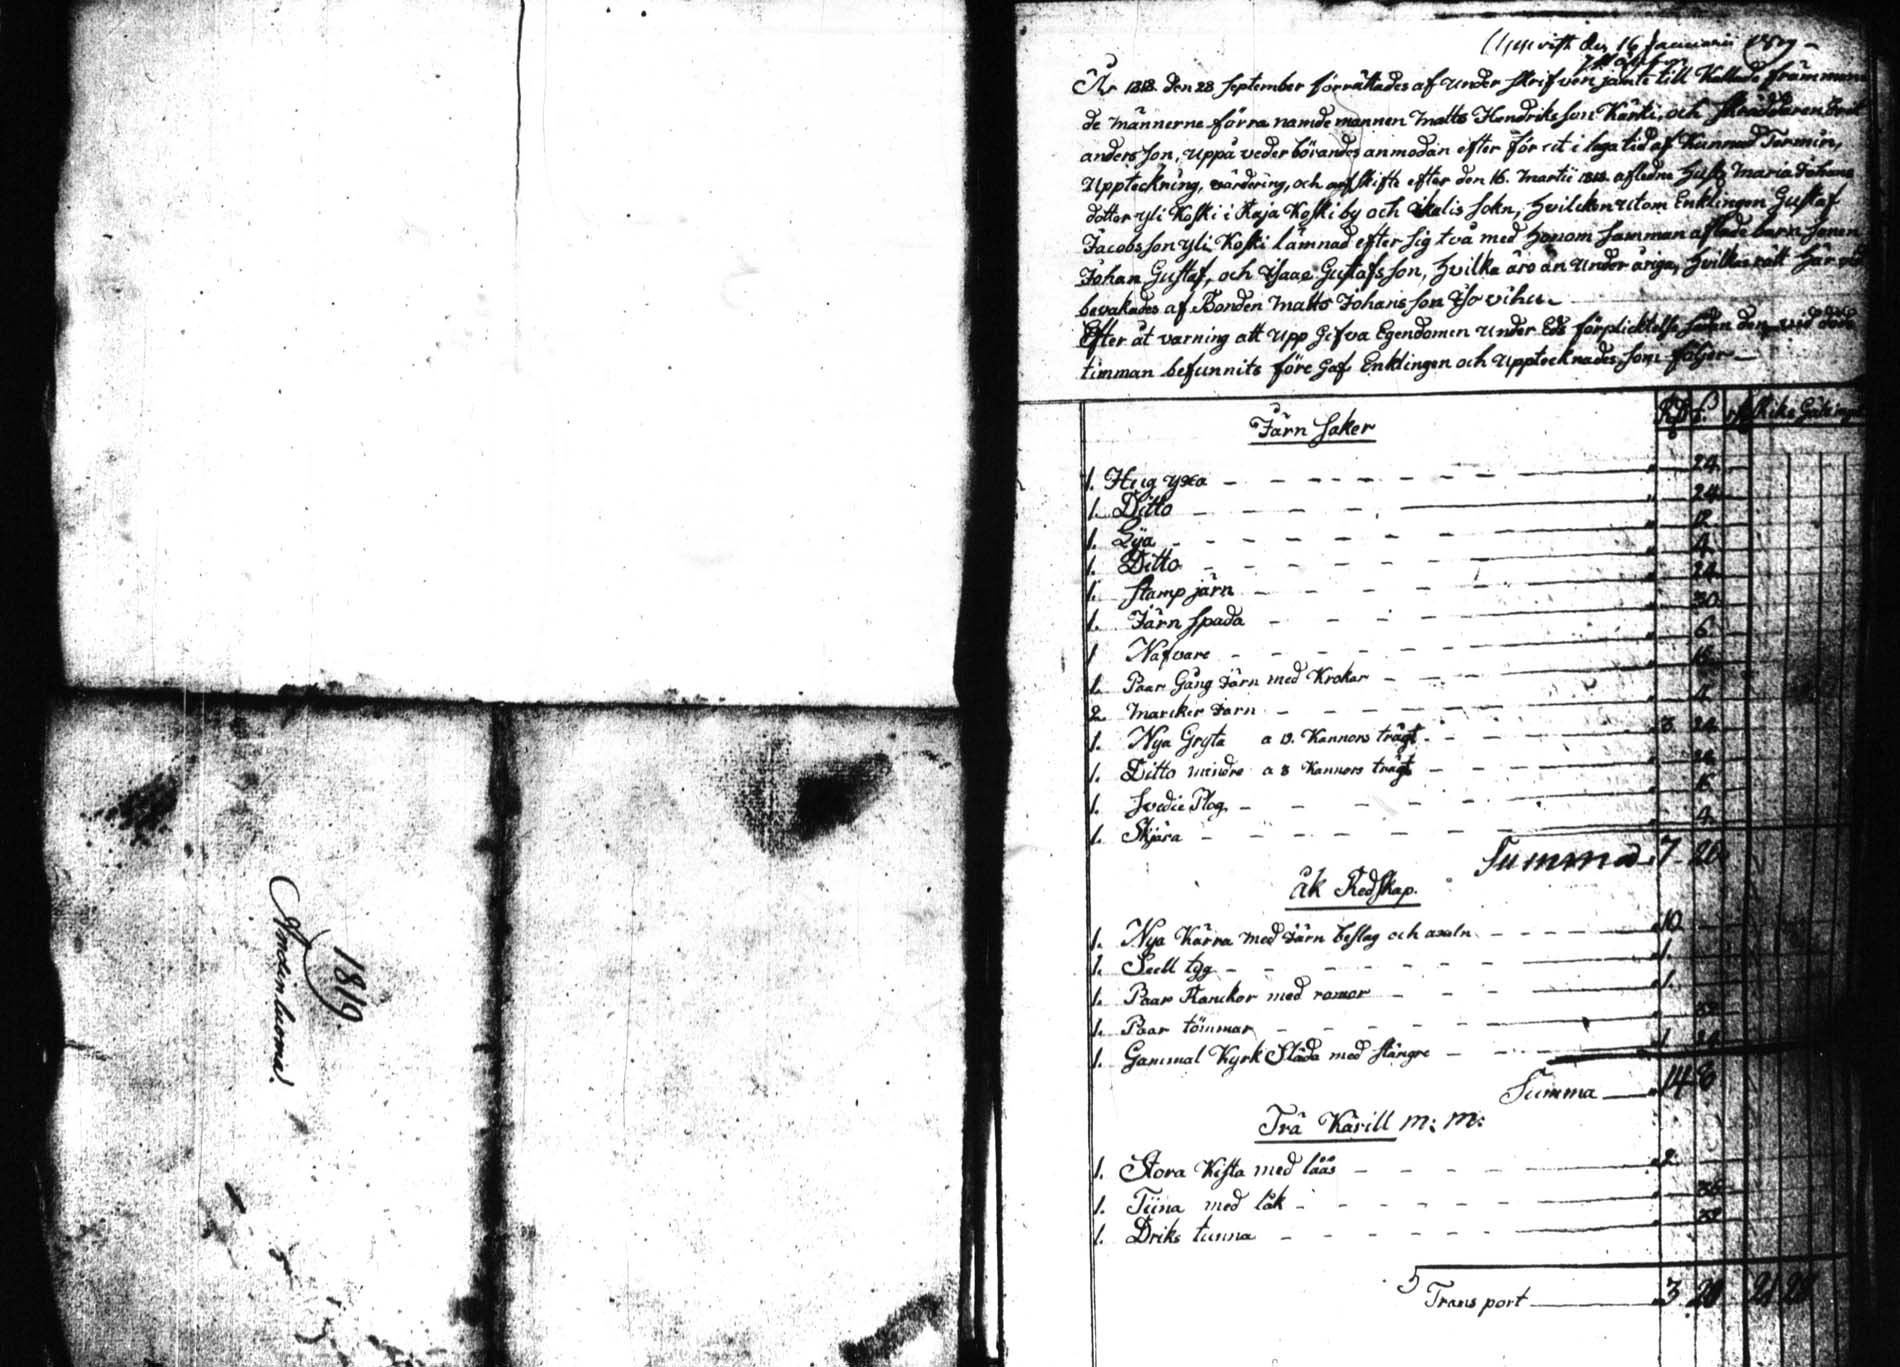 1819.
Andinluoma.
den 16 Januarii
År 1818. den 28 September förrättades af under skrifven jämte till Kallade främman
de männerne förra namdemannen Matts Hendriksson Kärki, och Skräddaren
anders son, uppå vederbörandes anmodan efter förut i laga tid af Kunnad Termin,
Uppteckning, värdering, och arfskifte efter den 16. Martii 1818. afledne Hust. Maria Johans
dotter yli Koski i Raja Koski by och Ikalis sokn, Hvilcken utom Enklingen Gustaf
Jacobsson yli Koski lämnad efter sig två med Honom samman aflade barn sonen
Johan Gustaf, och Isaac Gustafsson, Hvilka äro än under åriga, Hvilkas rätt Här vid
bevakades af Bonden Matts Johansson Iso vihu
Efter åt varning att Upp Gifva Egendomen under Eds förplicktelse sådan den vid döds
timman befunnits före Gaf Enklingen och Upptecknades, som följer
Järn saker
1. Hug yxa 24
1. Ditto 24
1. Lya 12
1. Ditto 4
1. Stamp järn 24
1. Järn spada 30
1 Nafvare 6
1. Paar Gång Järn med Krokar 16
2 Marcker Jarn 4
1. Nya Gryta a 13. Kannors trägt 3 24
1. Ditto mindre a 8 Kannors trägt
1. Svedie Plog
1. Skjära 4
Summa 7 20
åk Redskap.
1. Nya Kärra med Järn beslag och axeln 10
1. Seell tyg 1.
1. Paar Ranckor med ramar 1.
1. Paar tömmar 32
1. Gammal Kyrk Släda med stängre 1 24
Summa 14 8
Trä Kärill m: m:
1. Stora Kista med låås 2
1. Tiina med låk 36
1. Driks tunna 32
Transport 3 20 21 28